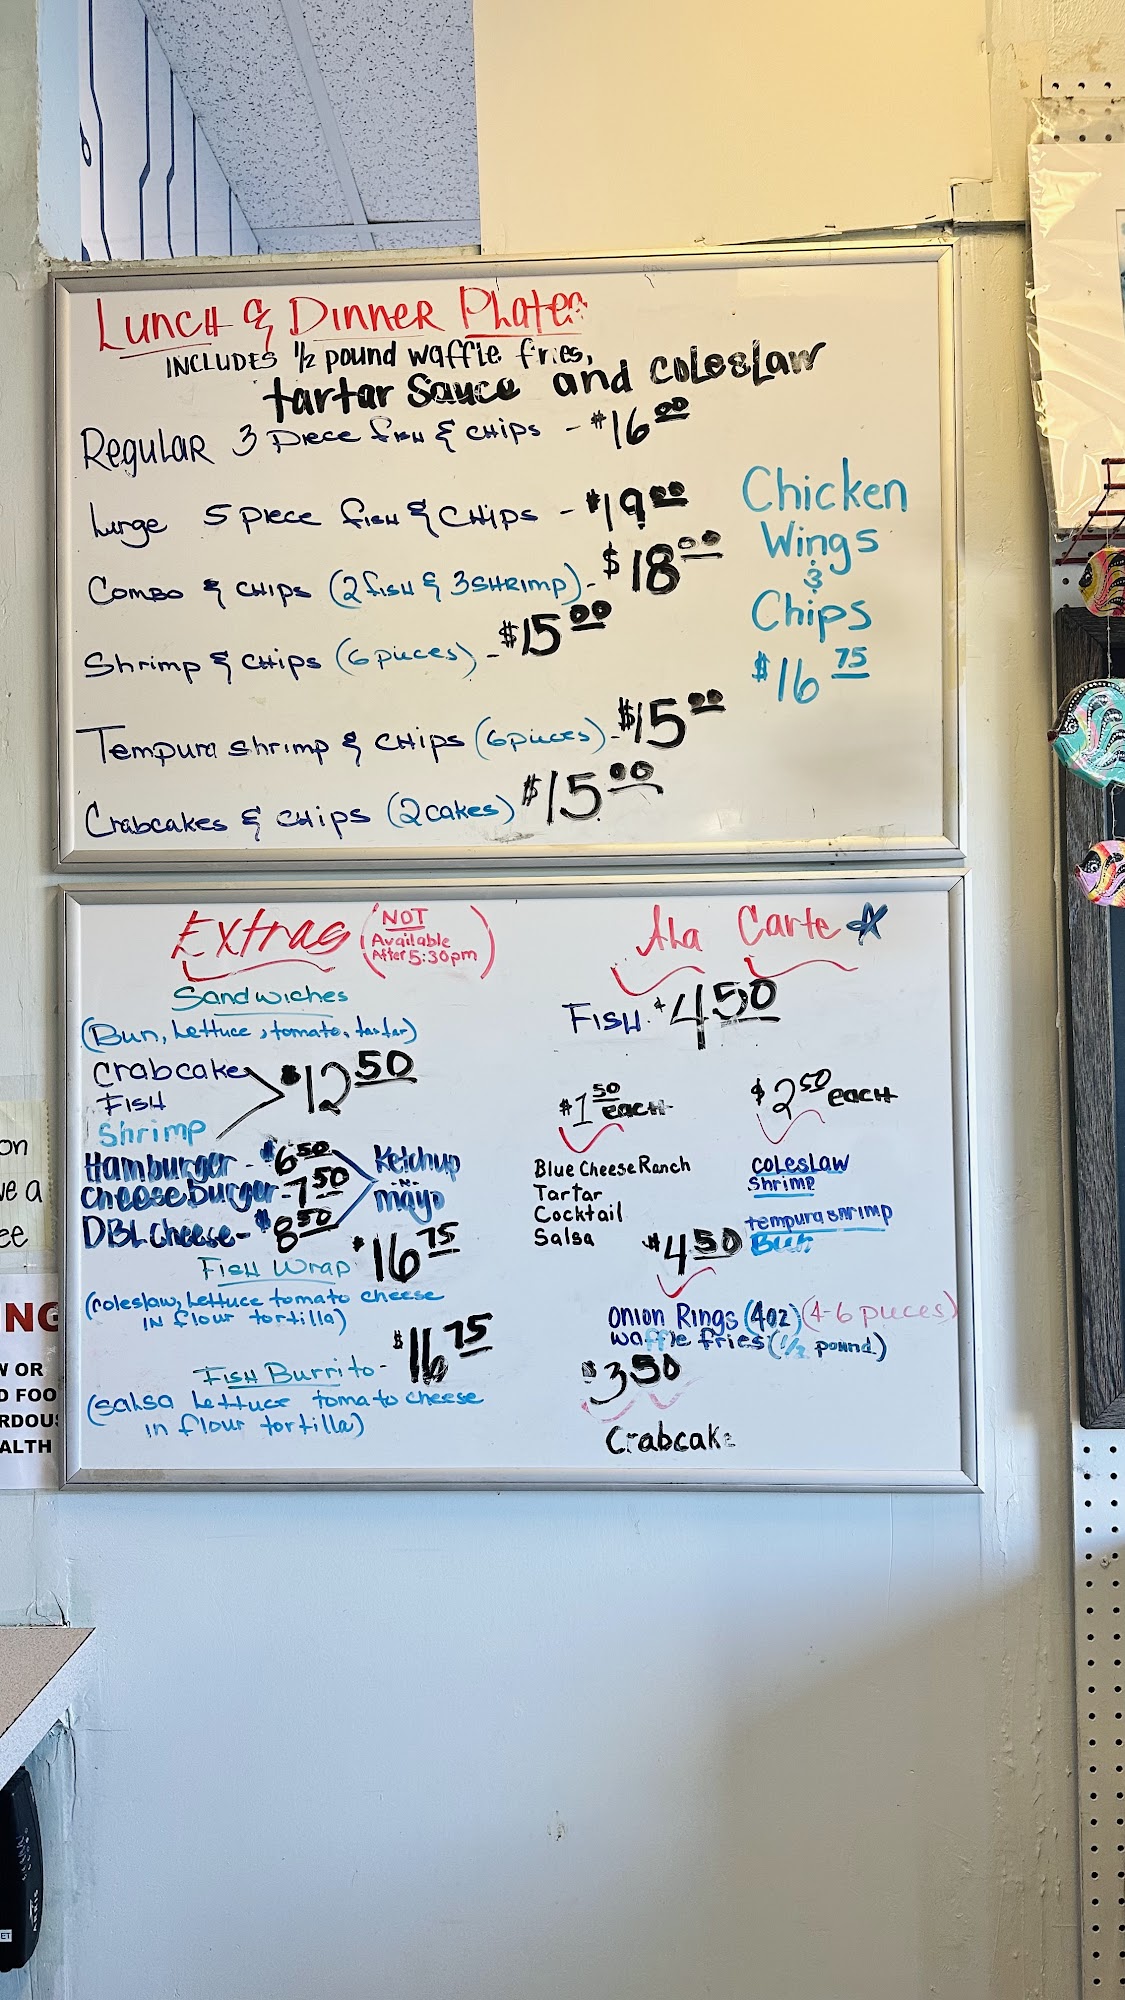 LUNCH & DINNER Plates
INCLUDES 1/2 pound waffle fries,
tartar Sauce and coleslaw
Regular 3 Piece fish & CHIPS - $16.00
Large 5 piece fish & CHIPS - $19.00
Combo & CHIPS (2 fish & 3 SHRIMP) - $18.00
Shrimp & CHIPS (6 pieces) - $15.00
Tempura shrimp & CHIPS (6 pieces) - $15.00
Crabcakes & CHIPS (2 cakes) $15.00
Chicken
Wings
&
Chips
$16 75
Extras (NOT
Available
After 5:30pm)
Sandwiches
(Bun, Lettuce, tomato, tartar)
Crabcake
FISH
Shrimp
$12 50
Hamburger - $6 50
cheeseburger - 7 50
DBL Cheese - $8 50
Ketchup
-N-
mayo
FISH Wrap $16 75
(coleslaw, Lettuce tomato cheese
IN flour tortilla)
FISH Burrito - $16 75
(salsa Lettuce tomato cheese
in flour tortilla)
Ala Carte
FISH $4 50
$1 50 each
Blue Cheese Ranch
Tartar
Cocktail
Salsa
$2 50 each
coleslaw
Shrimp
tempura shrimp
Bun
$4 50
Onion Rings (4oz) (4-6 pieces)
waffle fries (1/2 pound)
$3 50
Crabcake
on
ve a
ee
NG
W OR
D FOO
RDOUS
ALTH
ARRIS